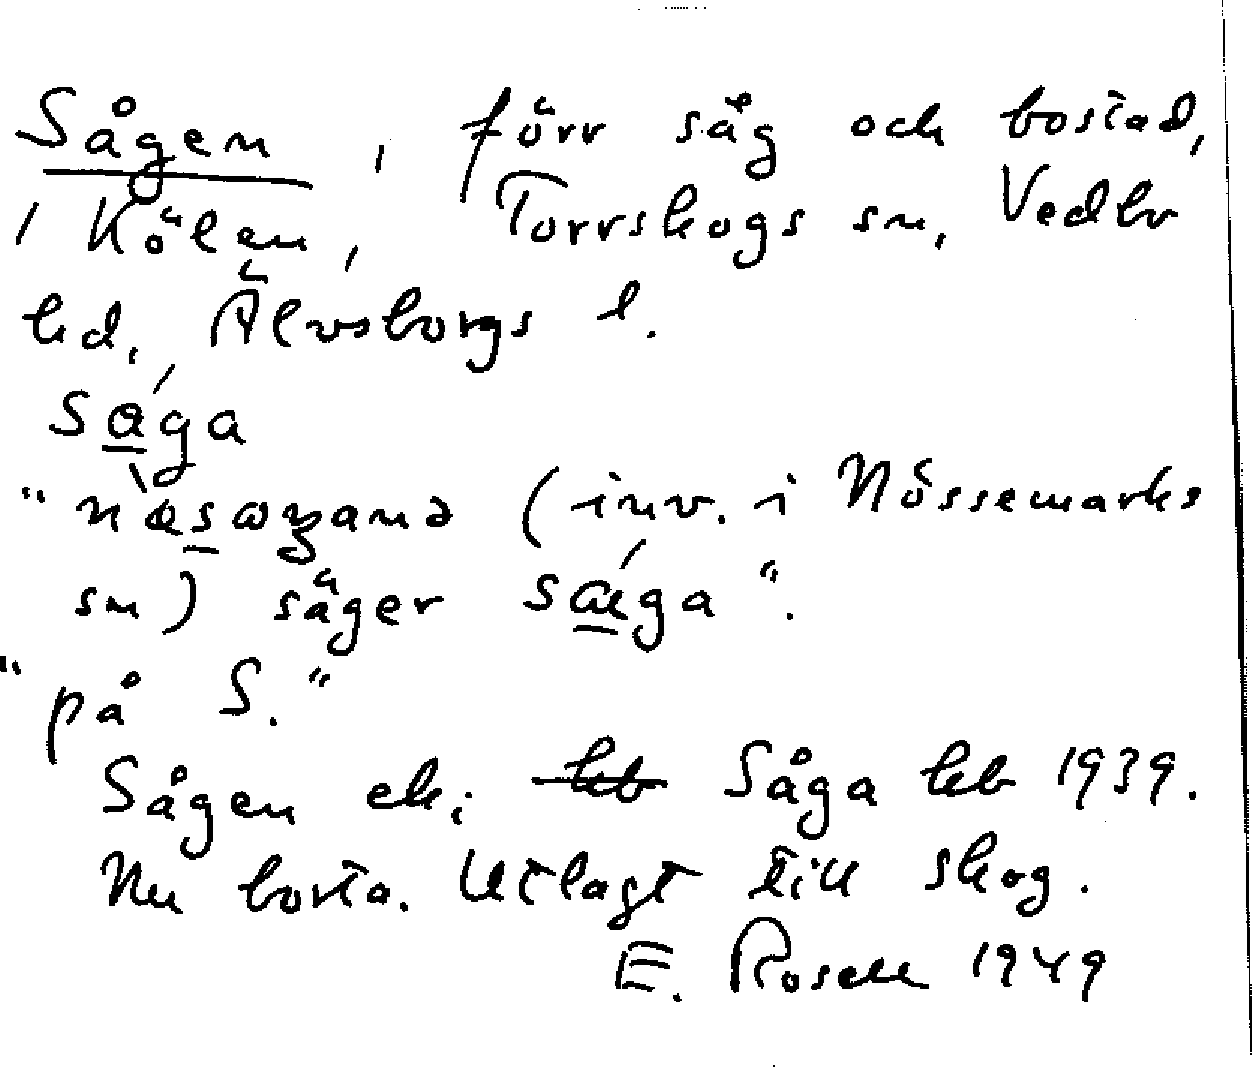 Sågen, förr såg och bostad,
i Kölen, Torrskogs sn, Vedbo
hd, Älvsborgs l.
sá̱ga
"nɑ̀s̱ωganə (inv. i Nössemarks
sn) säger sǽ̱ga".
"på S."
Sågen ek; hb Såga hb 1939.
Nu borta. Utlagt till skog.
E. Rosell 1949